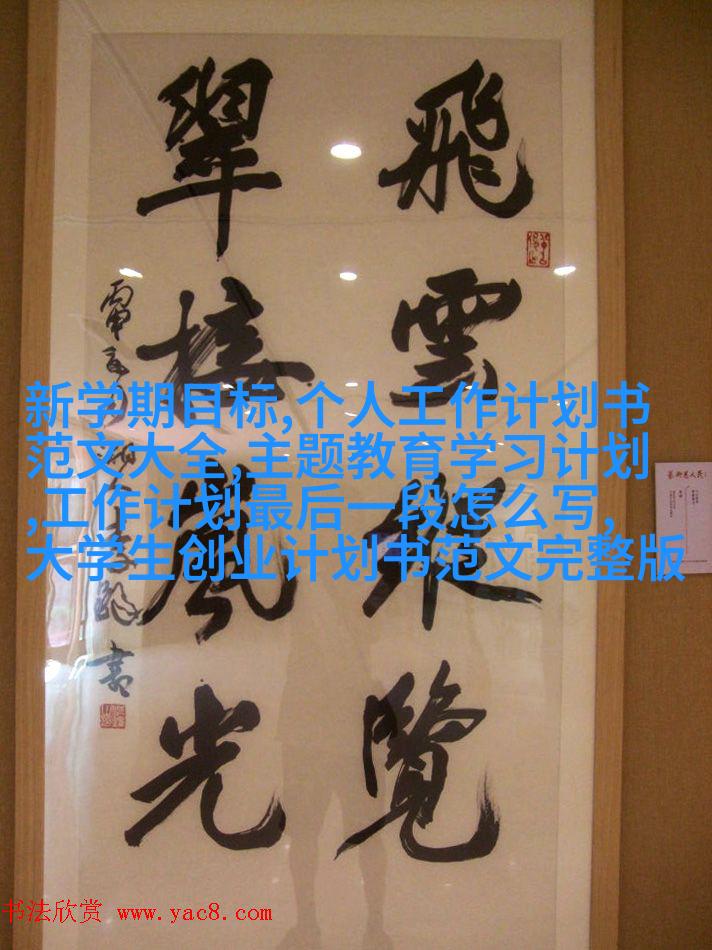 飛雲縱覽
翠接嵐光
書
新学期目标,个人工作计划书
范文大全,主题教育学习计划
,工作计划最后一段怎么写,
大学生创业计划书范文完整版
书法欣赏 www.yac8.com